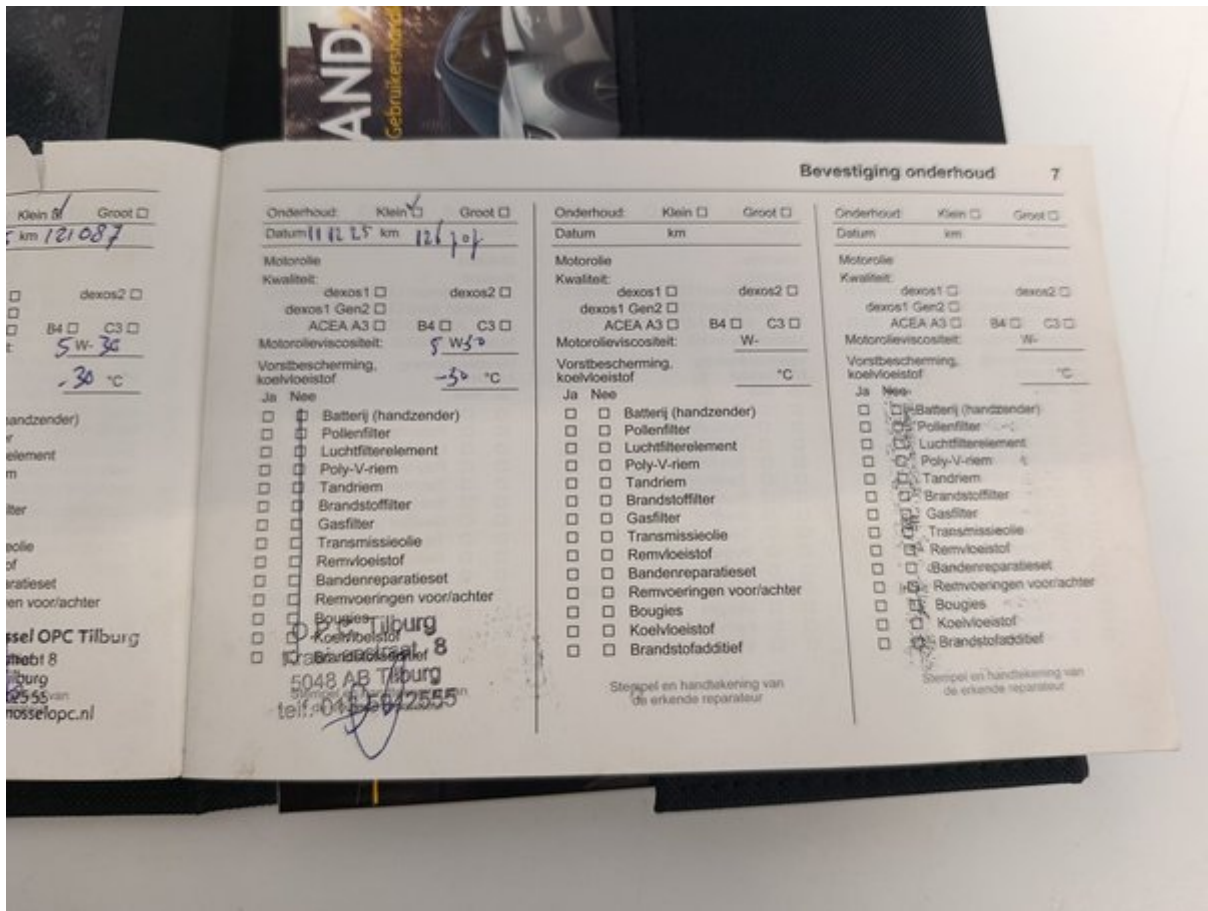 AND
Gebruikershand
Bevestiging onderhoud 7
Klein Groot
km 121087
dexos2
B4 C3
5 W- 30
-30 °C
andzender)
element
m
lter
eolie
of
aratieset
en voor/achter
ssel OPC Tilburg
8
burg
2555
mosselopc.nl
Onderhoud: Klein Groot
Datum 11 12 25 km 126
Motorolie
Kwaliteit:
dexos1 dexos2
dexos1 Gen2
ACEA A3 B4 C3
Motorolieviscositeit: 5 W 30
Vorstbescherming,
koelvloeistof -30 °C
Ja Nee
Batterij (handzender)
Pollenfilter
Luchtfilterelement
Poly-V-riem
Tandriem
Brandstoffilter
Gasfilter
Transmissieolie
Remvloeistof
Bandenreparatieset
Remvoeringen voor/achter
Bougies
Koelvloeistof
Brandstofadditief
O.P.C. Tilburg
8
5048 AB Tilburg
Stempel en handtekening van
telf. 013 5942555
Onderhoud: Klein Groot
Datum km
Motorolie
Kwaliteit:
dexos1 dexos2
dexos1 Gen2
ACEA A3 B4 C3
Motorolieviscositeit: W-
Vorstbescherming,
koelvloeistof °C
Ja Nee
Batterij (handzender)
Pollenfilter
Luchtfilterelement
Poly-V-riem
Tandriem
Brandstoffilter
Gasfilter
Transmissieolie
Remvloeistof
Bandenreparatieset
Remvoeringen voor/achter
Bougies
Koelvloeistof
Brandstofadditief
Stempel en handtekening van
de erkende reparateur
Onderhoud: Klein Groot
Datum km
Motorolie
Kwaliteit:
dexos1 dexos2
dexos1 Gen2
ACEA A3 B4 C3
Motorolieviscositeit: W-
Vorstbescherming,
koelvloeistof °C
Ja Nee
Batterij (handzender)
Pollenfilter
Luchtfilterelement
Poly-V-riem
Tandriem
Brandstoffilter
Gasfilter
Transmissieolie
Remvloeistof
Bandenreparatieset
Remvoeringen voor/achter
Bougies
Koelvloeistof
Brandstofadditief
Stempel en handtekening van
de erkende reparateur